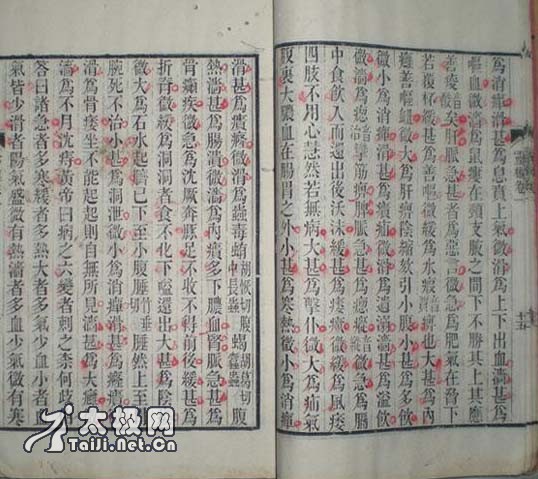 爲消癉滑甚爲息賁上氣微滑爲上下出血濇甚爲
嘔血微濇爲鼠瘻在頸支腋之間下不勝其上其應
善痠音矣肝脈急甚者爲惡言微急爲肥氣在脅下
若覆杯緩甚爲善嘔微緩爲水瘕音痹也大甚爲內
癰善嘔衄微大爲肝痹陰縮欬引小腹小甚爲多飲
微小爲消癉滑甚爲㿉疝微滑爲遺溺濇甚爲溢飲
微濇爲瘛音攣筋痹脾脈急甚爲瘛瘲音微急爲膈
中食飲入而還出後沃沫緩甚爲痿厥微緩爲風痿
四肢不用心慧然若無病大甚爲擊仆微大爲疝氣
腹裏大膿血在腸胃之外小甚爲寒熱微小爲消癉
滑甚爲㿉癃微滑爲蟲毒蛕胡恢切腹中長蟲蝎胡葛切蠹蟲腹
熱濇甚爲腸㿉微濇爲內㿉多下膿血腎脈急甚爲
骨癲疾微急爲沈厥奔豚足不收不得前後緩甚爲
折脊微緩爲洞洞者食不化下嗌還出大甚爲陰痿
微大爲石水起臍已下至小腹腄竹垂腄然上至胃
腕死不治小甚爲洞泄微小爲消癉滑甚爲癃㿉微
滑爲骨痿坐不能起起則目無所見濇甚爲大癰微
濇爲不月沈痔黃帝曰病之六變者刺之柰何歧伯
答曰諸急者多寒緩者多熱大者多氣少血小者血
氣皆少滑者陽氣盛微有熱濇者多血少氣微有寒
太极网
Taiji.Net.Cn